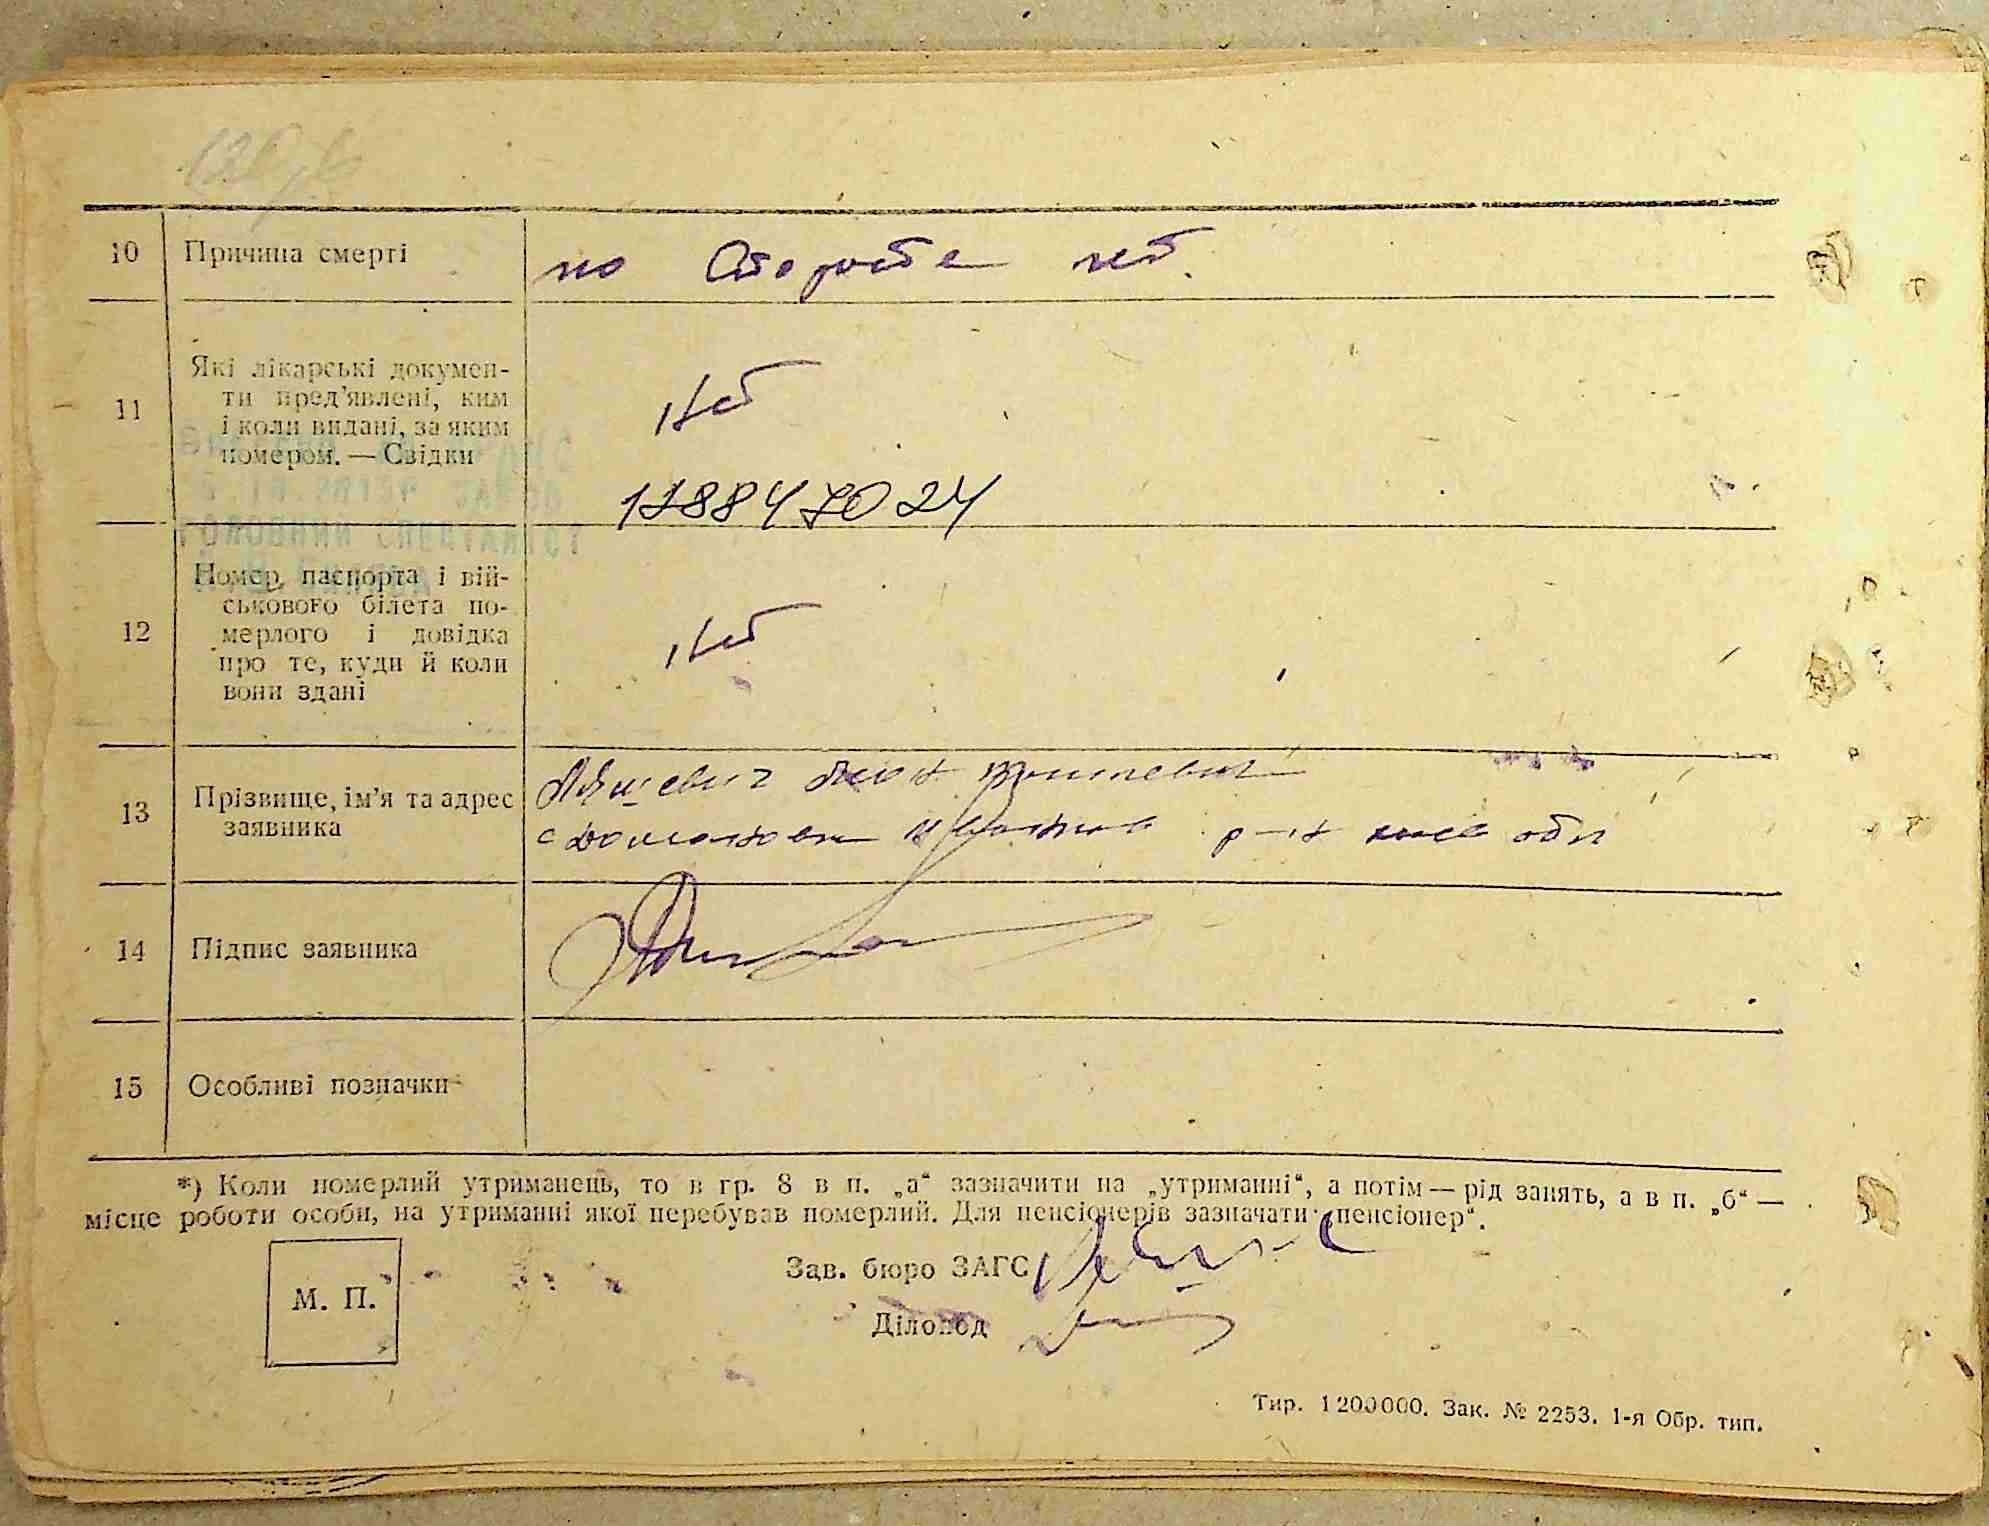 10 Причина смерті по Старосте лет.
11 Які лікарські докумен-
ти пред'явлені, ким
і коли видані, за яким
номером. — Свідки
Нет
118847024
ГОЛОВНИЙ СПЕЦІАЛІСТ
12 Номер паспорта і вій-
ськового білета по-
мерлого і довідка
про те, куди й коли
вони здані
Нет
13 Прізвище, ім'я та адрес
заявника
р-н киев обл
14 Підпис заявника
15 Особливі позначки
*) Коли померлий утриманець, то в гр. 8 в п. „а“ зазначити на „утриманні“, а потім — рід занять, а в п. „б“ —
місце роботи особи, на утриманні якої перебував померлий. Для пенсіонерів зазначати „пенсіонер“.
Зав. бюро ЗАГС
М. П.
Діловод
Тир. 1200000. Зак. № 2253. 1-я Обр. тип.